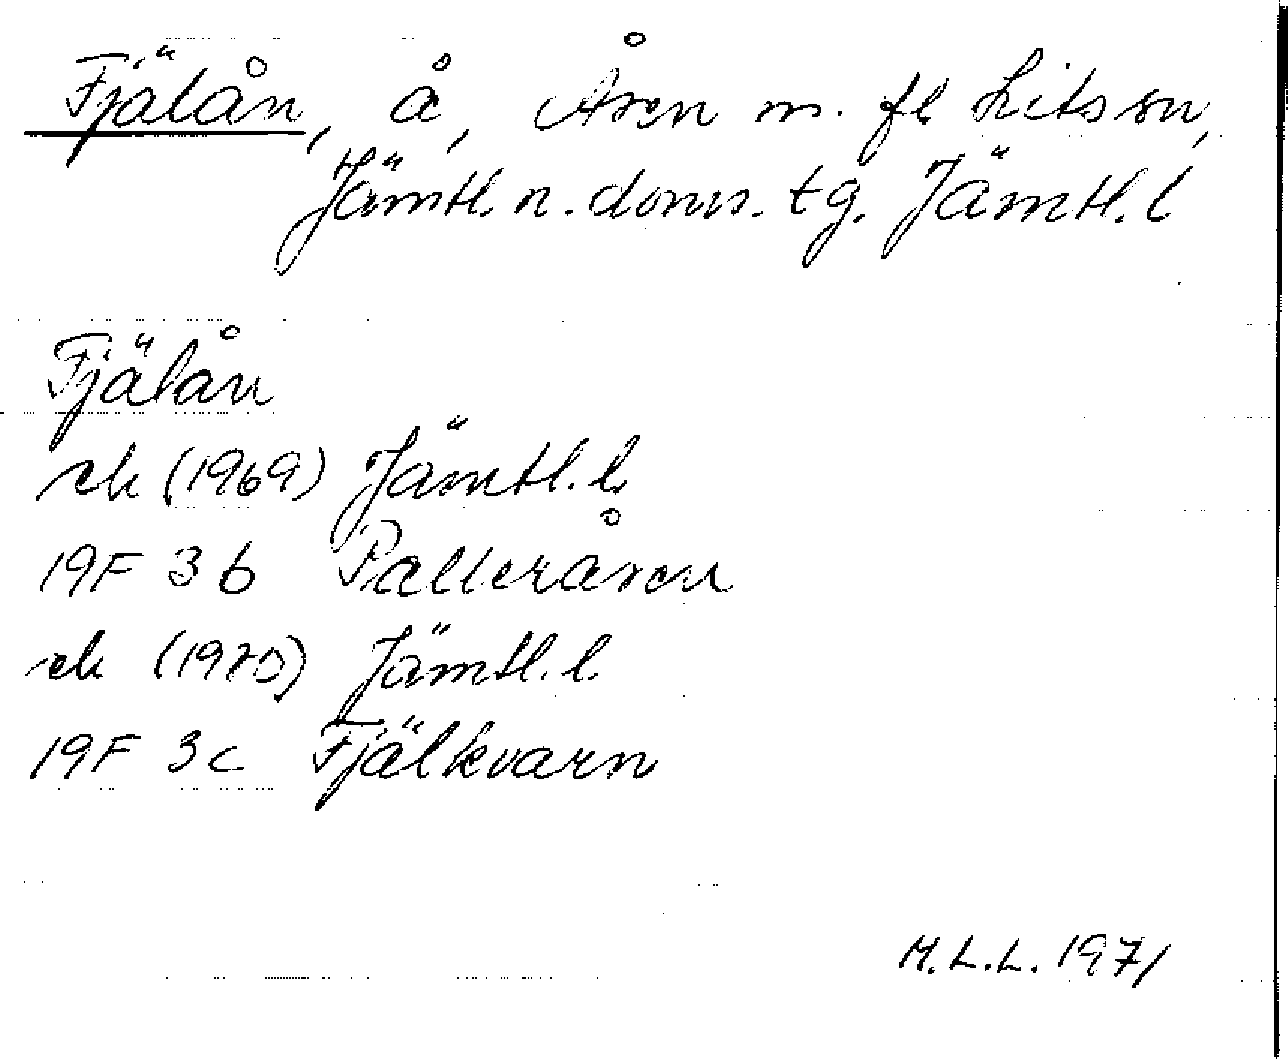 Fjälån, å, Åsen m. fl Lits sn,
Jämtl. n. doms. tg. Jämtl. l
Fjälån
ek (1969) Jämtl. l.
19F 3 b Palleråsen
ek (1970) Jämtl. l.
19F 3c Fjälkvarn
M.L.L. 1971